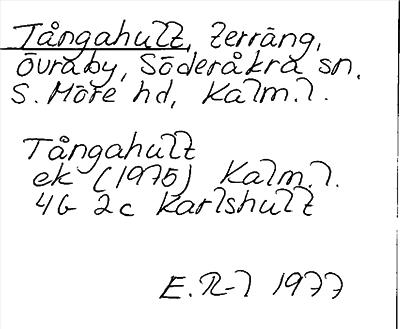 Tångahult, Terräng,
Övraby, Söderåkra sn.
S. Möre hd, Kalm. l.
Tångahult
ek (1975) Kalm. l.
4G 2c Karlshult
E. R-l 1977